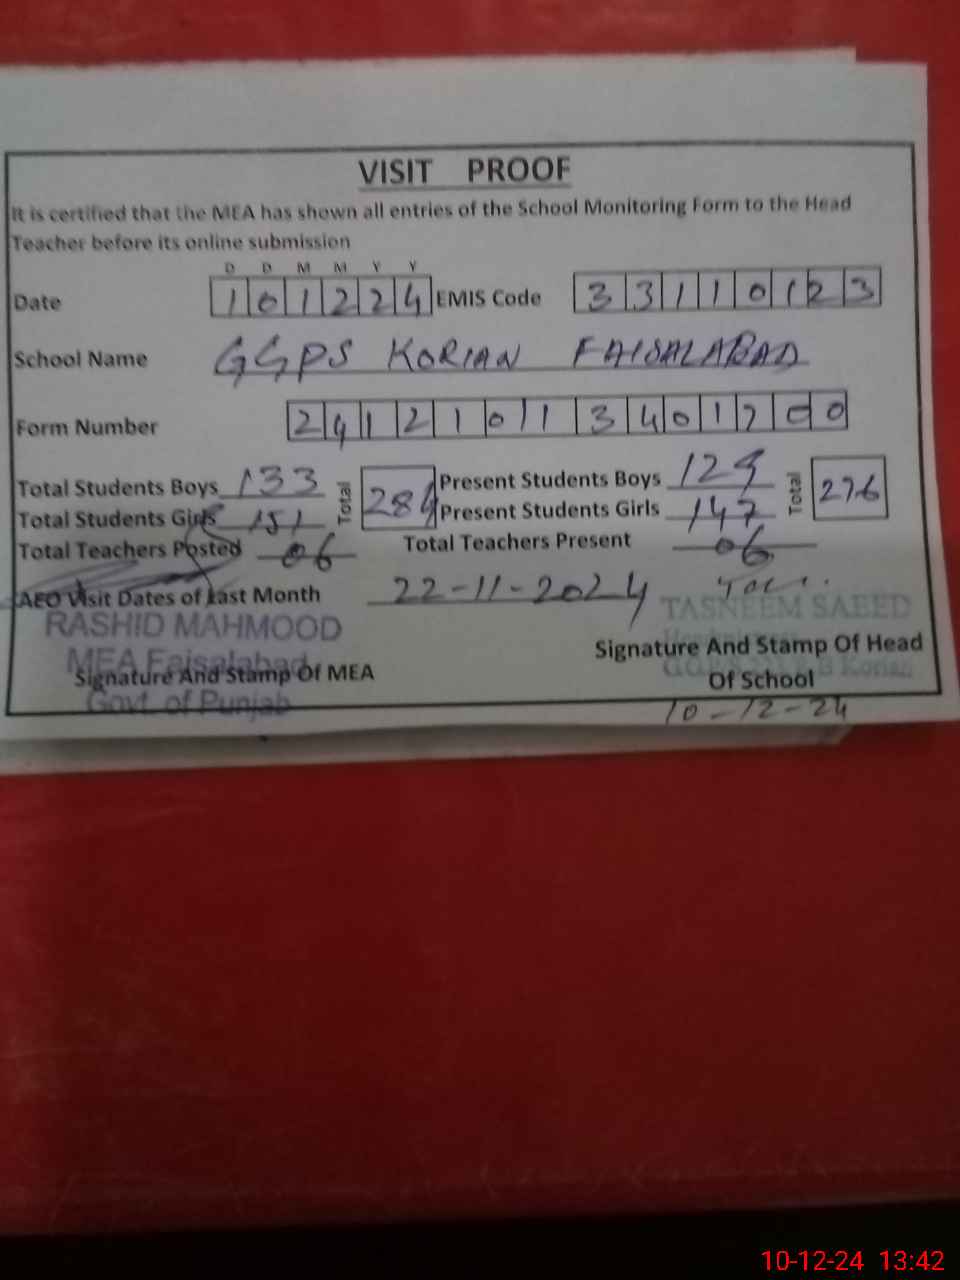 VISIT PROOF
It is certified that the MEA has shown all entries of the School Monitoring Form to the Head
Teacher before its online submission
D D M M Y Y
Date 1 0 1 2 2 4 EMIS Code 3 3 1 1 0 1 2 3
School Name GGPS KORIAN FAISALABAD
Form Number 2 4 1 2 1 0 1 1 3 4 0 1 7 0 0
Total Students Boys 133 Total 284 Present Students Boys 129 Total 276
Total Students Girls 151 Present Students Girls 147
Total Teachers Posted 06 Total Teachers Present 06
AEO Visit Dates of Last Month 22-11-2024
RASHID MAHMOOD
MEA Faisalabad
Govt. of Punjab
Signature And Stamp Of MEA
TASNEEM SAEED
Korian
Signature And Stamp Of Head
Of School
10-12-24
10-12-24 13:42